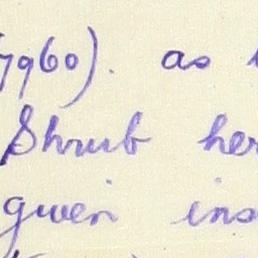 1960). as
Shrub her
given ins